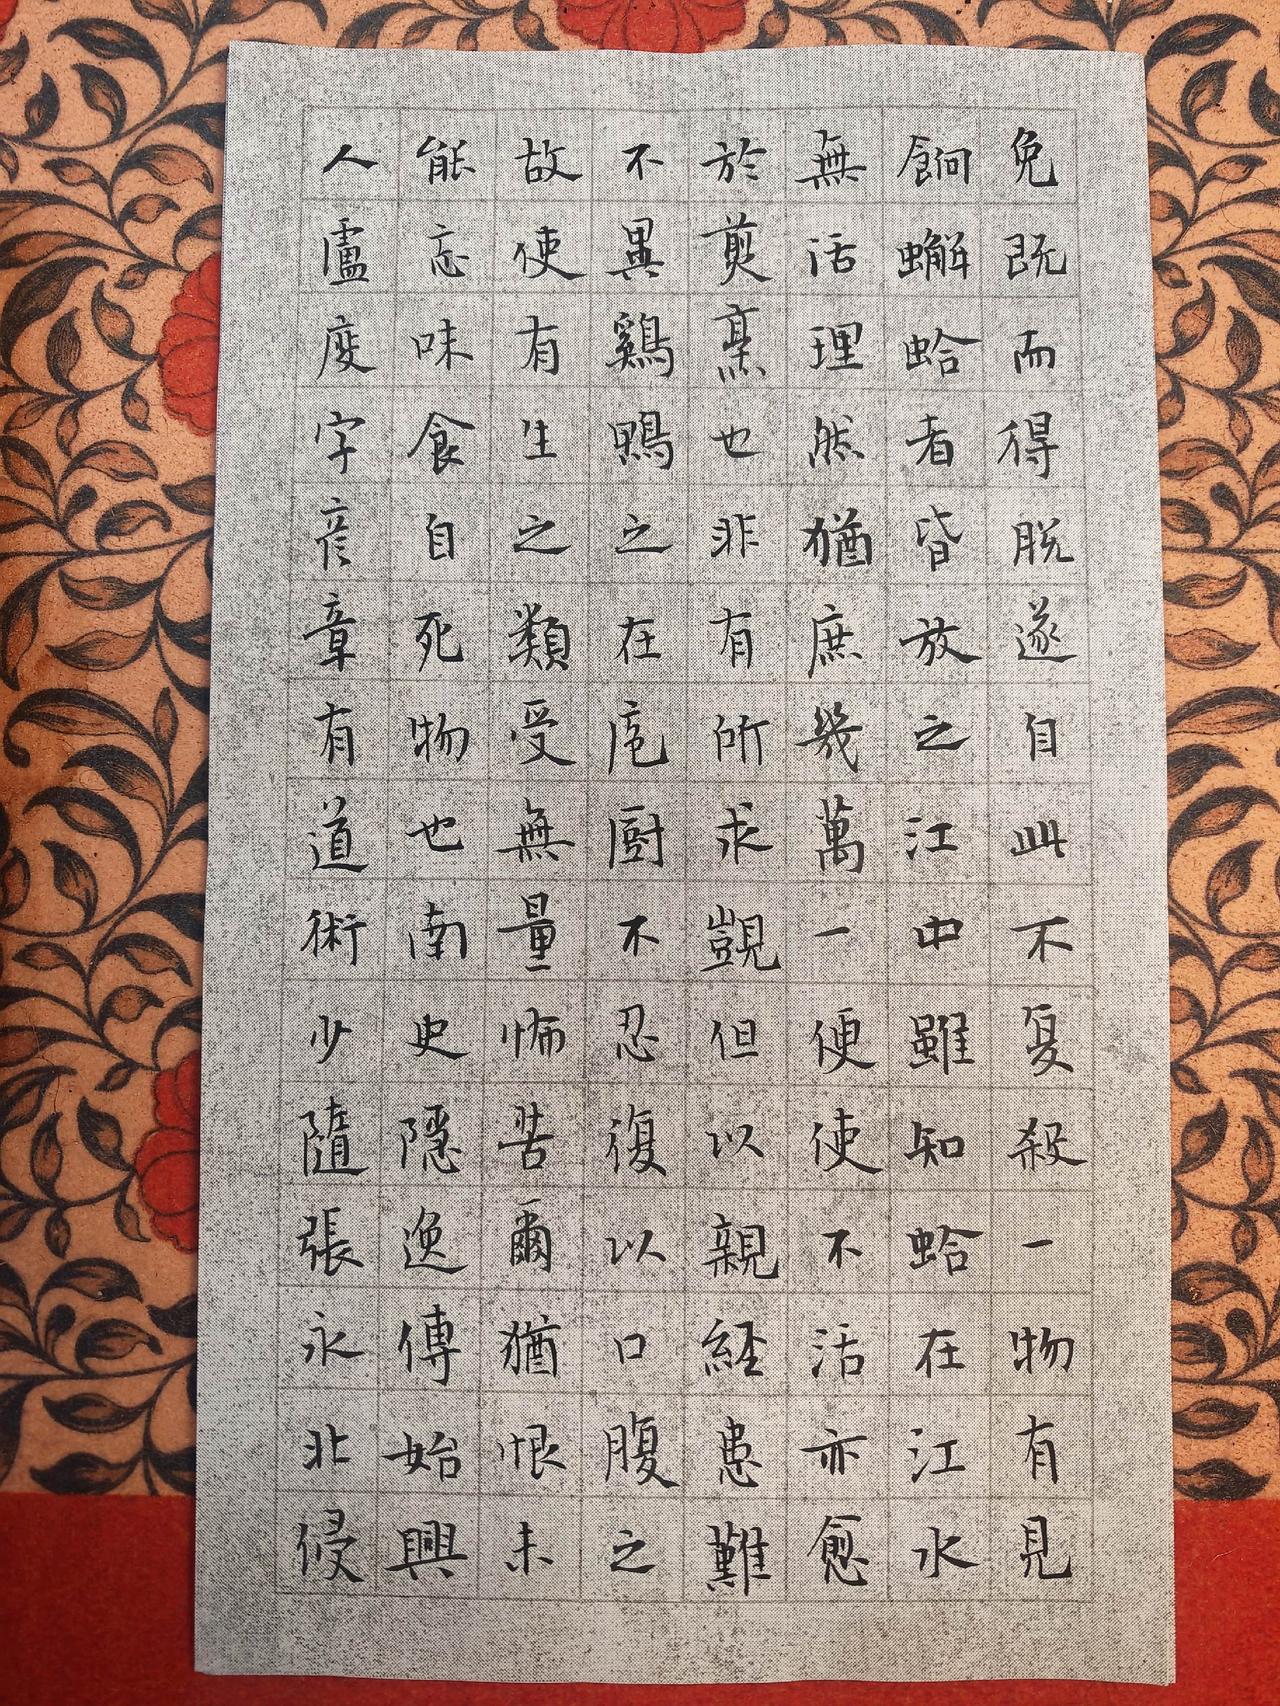 免既而得脱遂自此不复殺一物有見
餉蠏蛤者皆放之江中雖知蛤在江水
無活理然猶庶幾萬一便使不活亦愈
於煎烹也非有所求覬但以親経患難
不異鷄鴨之在庖厨不忍復以口腹之
故使有生之類受無量怖苦爾猶恨未
能忘味食自死物也南史隱逸傳始興
人盧度字彦章有道術少隨張永北侵